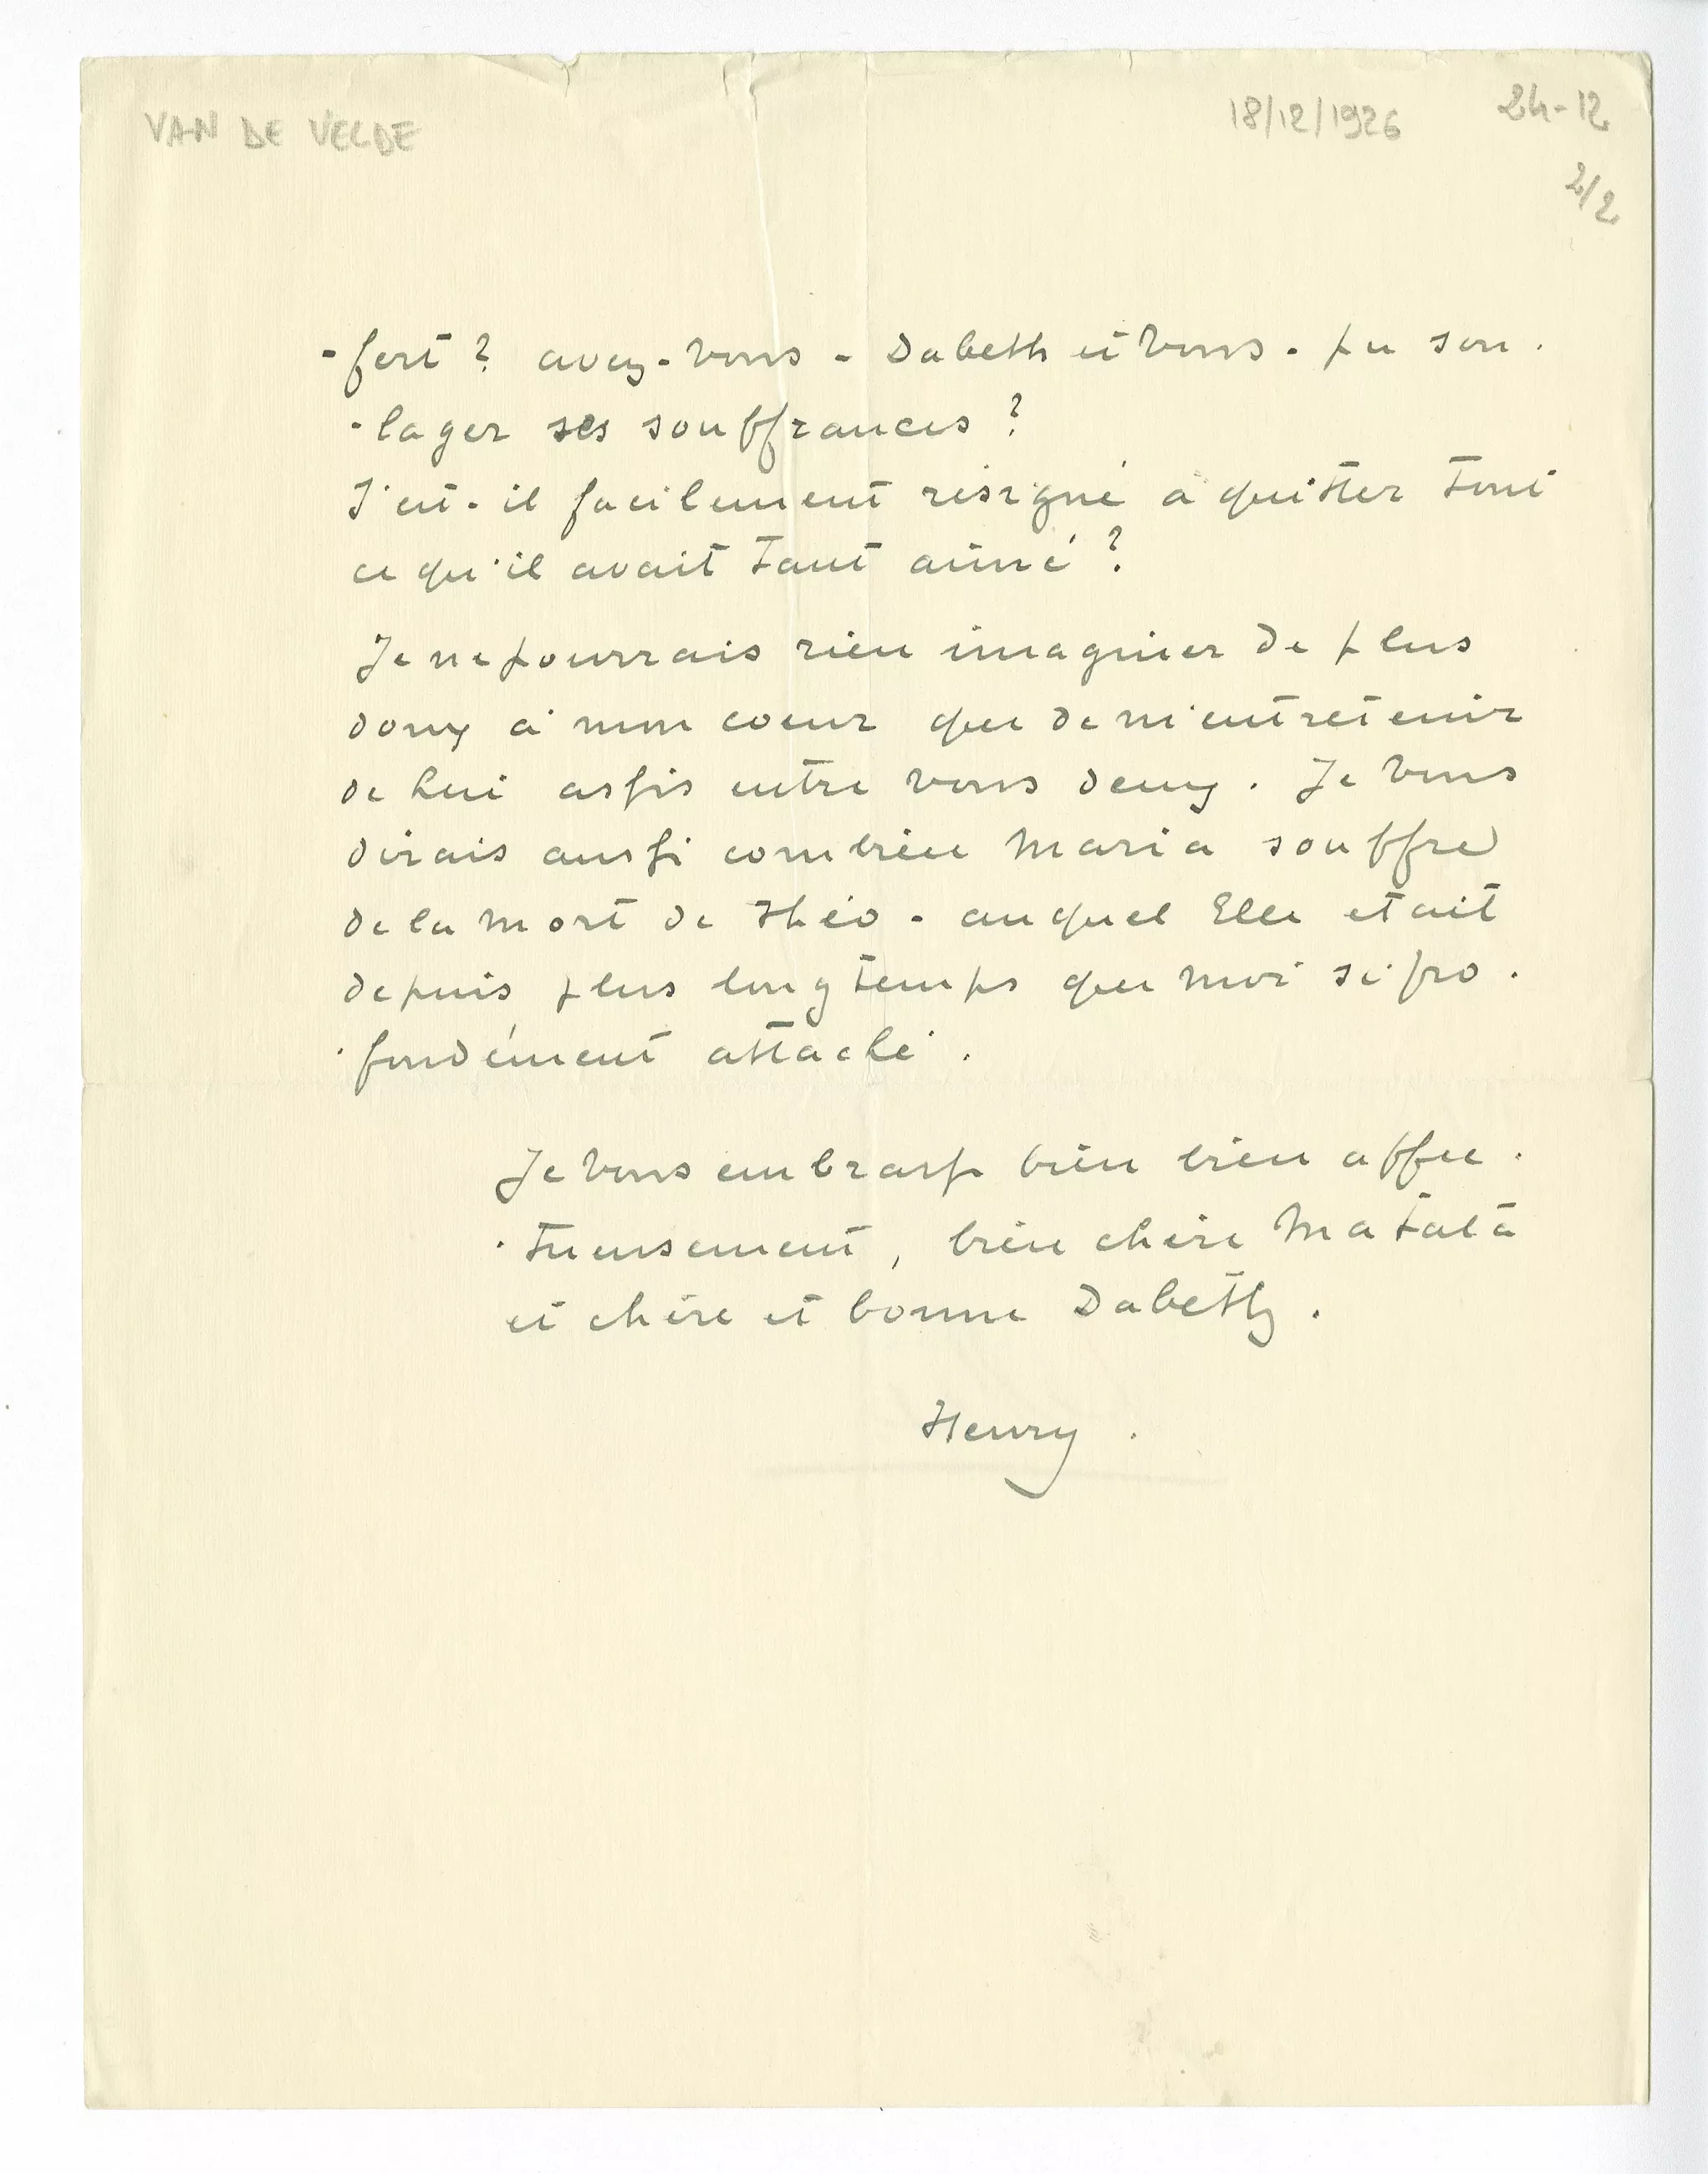 VAN DE VELDE
18/12/1926
24-12
2/2
-fert ? avez-vous - Dabeth et vous - pu sou-
-lager ses souffrances ?
S'est-il facilement résigné à quitter tout
ce qu'il avait tant aimé ?
Je ne pourrais rien imaginer de plus
doux à mon coeur que de m'entretenir
de lui assis entre vous deux. Je vous
dirais aussi combien Maria souffre
de la mort de Théo - auquel Elle etait
depuis plus longtemps que moi si pro-
-fondément attaché.
Je vous embrasse bien bien affec-
-tueusement, bien chère Matata
et chère et bonne Dabeth.
Henry.